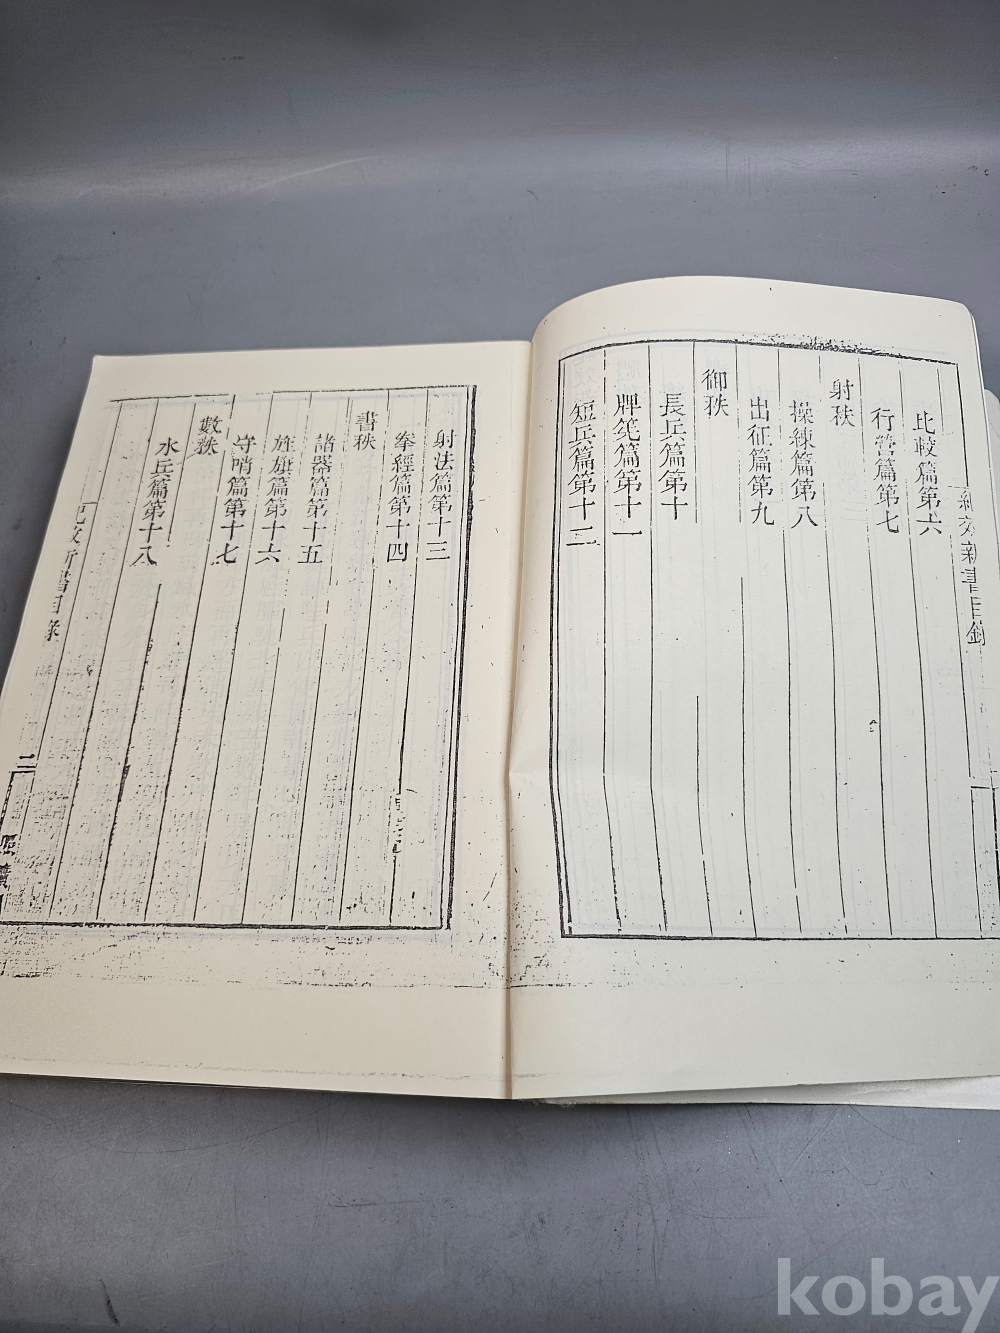 紀效新書目錄
比較篇第六
行營篇第七
射秩
操練篇第八
出征篇第九
御秩
長兵篇第十
牌筅篇第十一
短兵篇第十二
射法篇第十三
拳經篇第十四
書秩
諸器篇第十五
旌旗篇第十六
守哨篇第十七
數秩
水兵篇第十八
紀效新書目錄
二
kobay